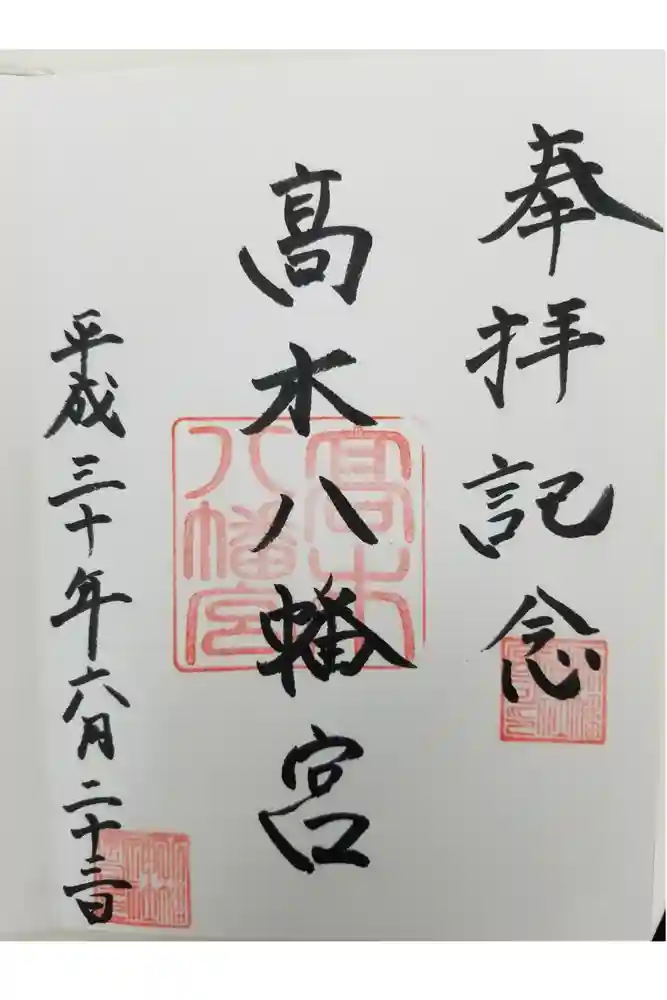 奉拝記念
髙木八幡宮
髙木
八幡宮
平成三十年六月二十三日